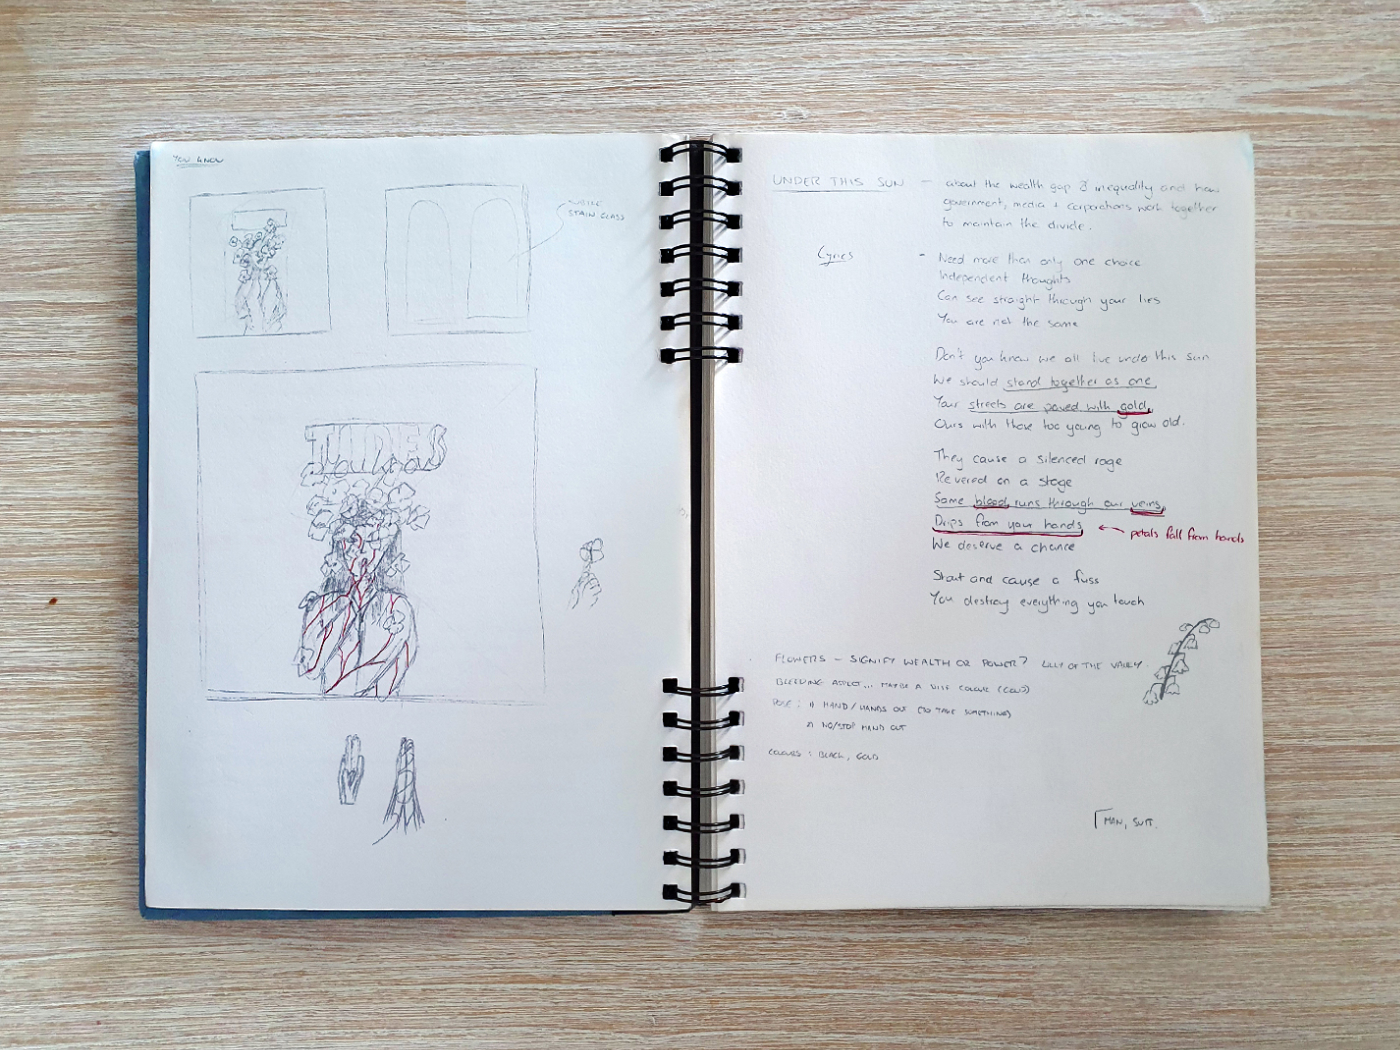 YOU KNOW
STAIN GLASS
UNDER THIS SUN — about the wealth gap & inequality and how
government, media + corporations work together
to maintain the divide.
Lyrics
- Need more than only one choice
Independent thoughts
Can see straight through your lies
You are not the same
Don't you know we all live under this sun
We should stand together as one,
Your streets are paved with gold,
Ours with those too young to grow old.
They cause a silenced rage
Revered on a stage
Same blood runs through our veins,
Drips from your hands
← petals fall from hands
We deserve a chance
Shout and cause a fuss
You destroy everything you touch
FLOWERS — SIGNIFY WEALTH OR POWER? LILLY OF THE VALLEY.
BLEEDING ASPECT... MAYBE A DIFF COLOUR (GOLD)
POSE: 1) HAND/HANDS OUT (TO TAKE SOMETHING)
2) NO/STOP HAND OUT
COLOURS: BLACK, GOLD
MAN, SUIT.